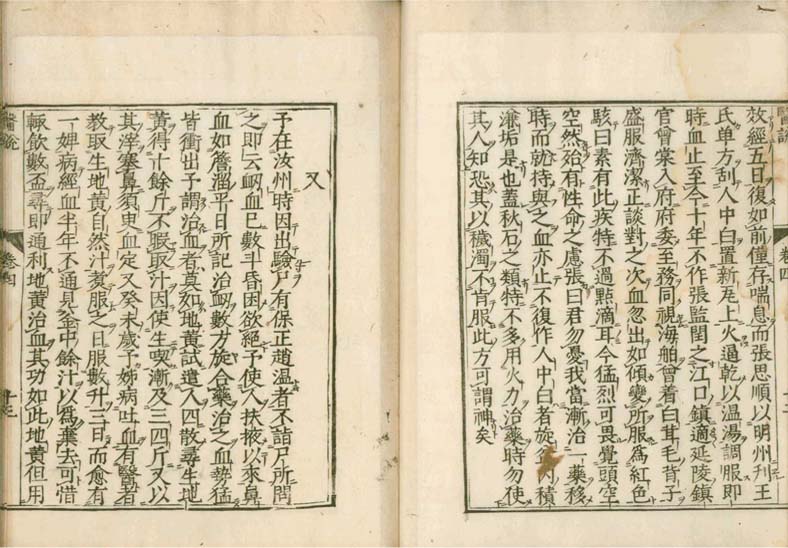 醫說
卷四
十三
效經五日復如前僅存喘息而張思順以明州刋王
氏单方刮人中白置新瓦上火逼乾以温湯調服即
時血止至今十年不作張監閏之江口鎮適延陵鎮
官曾棠入府府委至務同視海舶曾着白茸毛背子
盛服濟潔正談對之次血忽出如傾變所服為紅色
駭曰素有此疾特不過點滴耳今猛烈可畏覺頭空
空然殆有性命之慮張曰君勿憂我當漸治一藥移
時而就持與之血亦止不復作人中白者旋盆内積
溓垢是也蓋秋石之類特不多用火力治藥時勿使
其人知恐其以穢濁不肯服此方可謂神矣
又
予在汝州時因出驗尸有保正趙温者不詣尸所問
之即云衂血已數斗昏困欲絶予使人扶掖以來鼻
血如簷溜平日所記治衂數方旋合藥治之血勢猛
皆衝出予謂治血者莫如地黄試遣人四散尋生地
黄得十餘斤不暇取汁因使生喫漸及三四斤又以
其滓塞鼻須臾血定又癸未歲予姊病吐血有醫者
教取生地黄自然汁煑服之日服數升三日而愈有
一婢病經血半年不通見釜中餘汁以為棄去可惜
輒飲數盃尋即通利地黄治血其功如此地黄但用
醫說
卷四
十三